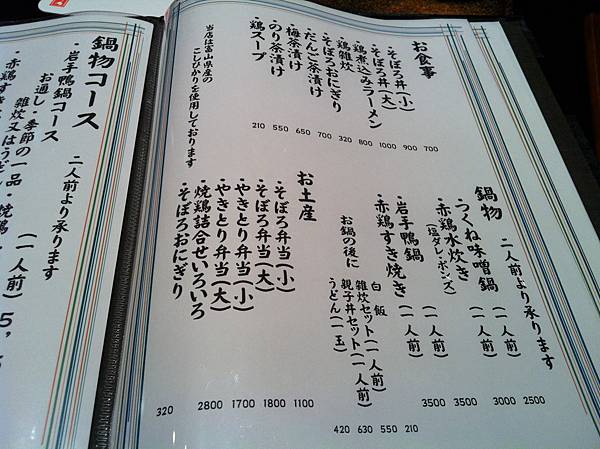 お食事
・そぼろ丼(小) 700
・そぼろ丼(大) 900
・鶏煮込みラーメン 1000
・鶏雑炊 800
・そぼろおにぎり 320
・だんご茶漬け 700
・梅茶漬け 650
・のり茶漬け 550
・鶏スープ 210
当店は富山県産の
こしひかりを使用しております
鍋物 二人前より承ります
・つくね味噌鍋 (一人前) 2500
・赤鶏水炊き (一人前) 3000
(塩ダレ・ポンズ)
・岩手鴨鍋 (一人前) 3500
・赤鶏すき焼き (一人前) 3500
お鍋の後に
白飯 210
雑炊セット(一人前) 550
親子丼セット(一人前) 630
うどん(一玉) 420
お土産
・そぼろ弁当(小) 1100
・そぼろ弁当(大) 1800
・やきとり弁当(小) 1700
・やきとり弁当(大) 2800
・焼鶏詰合せいろいろ
・そぼろおにぎり 320
鍋物コース 二人前より承ります
・岩手鴨鍋コース
(一人前) 5,
お通し・季節の一品・焼鶏・
雑炊又はうどん
・赤鶏すき